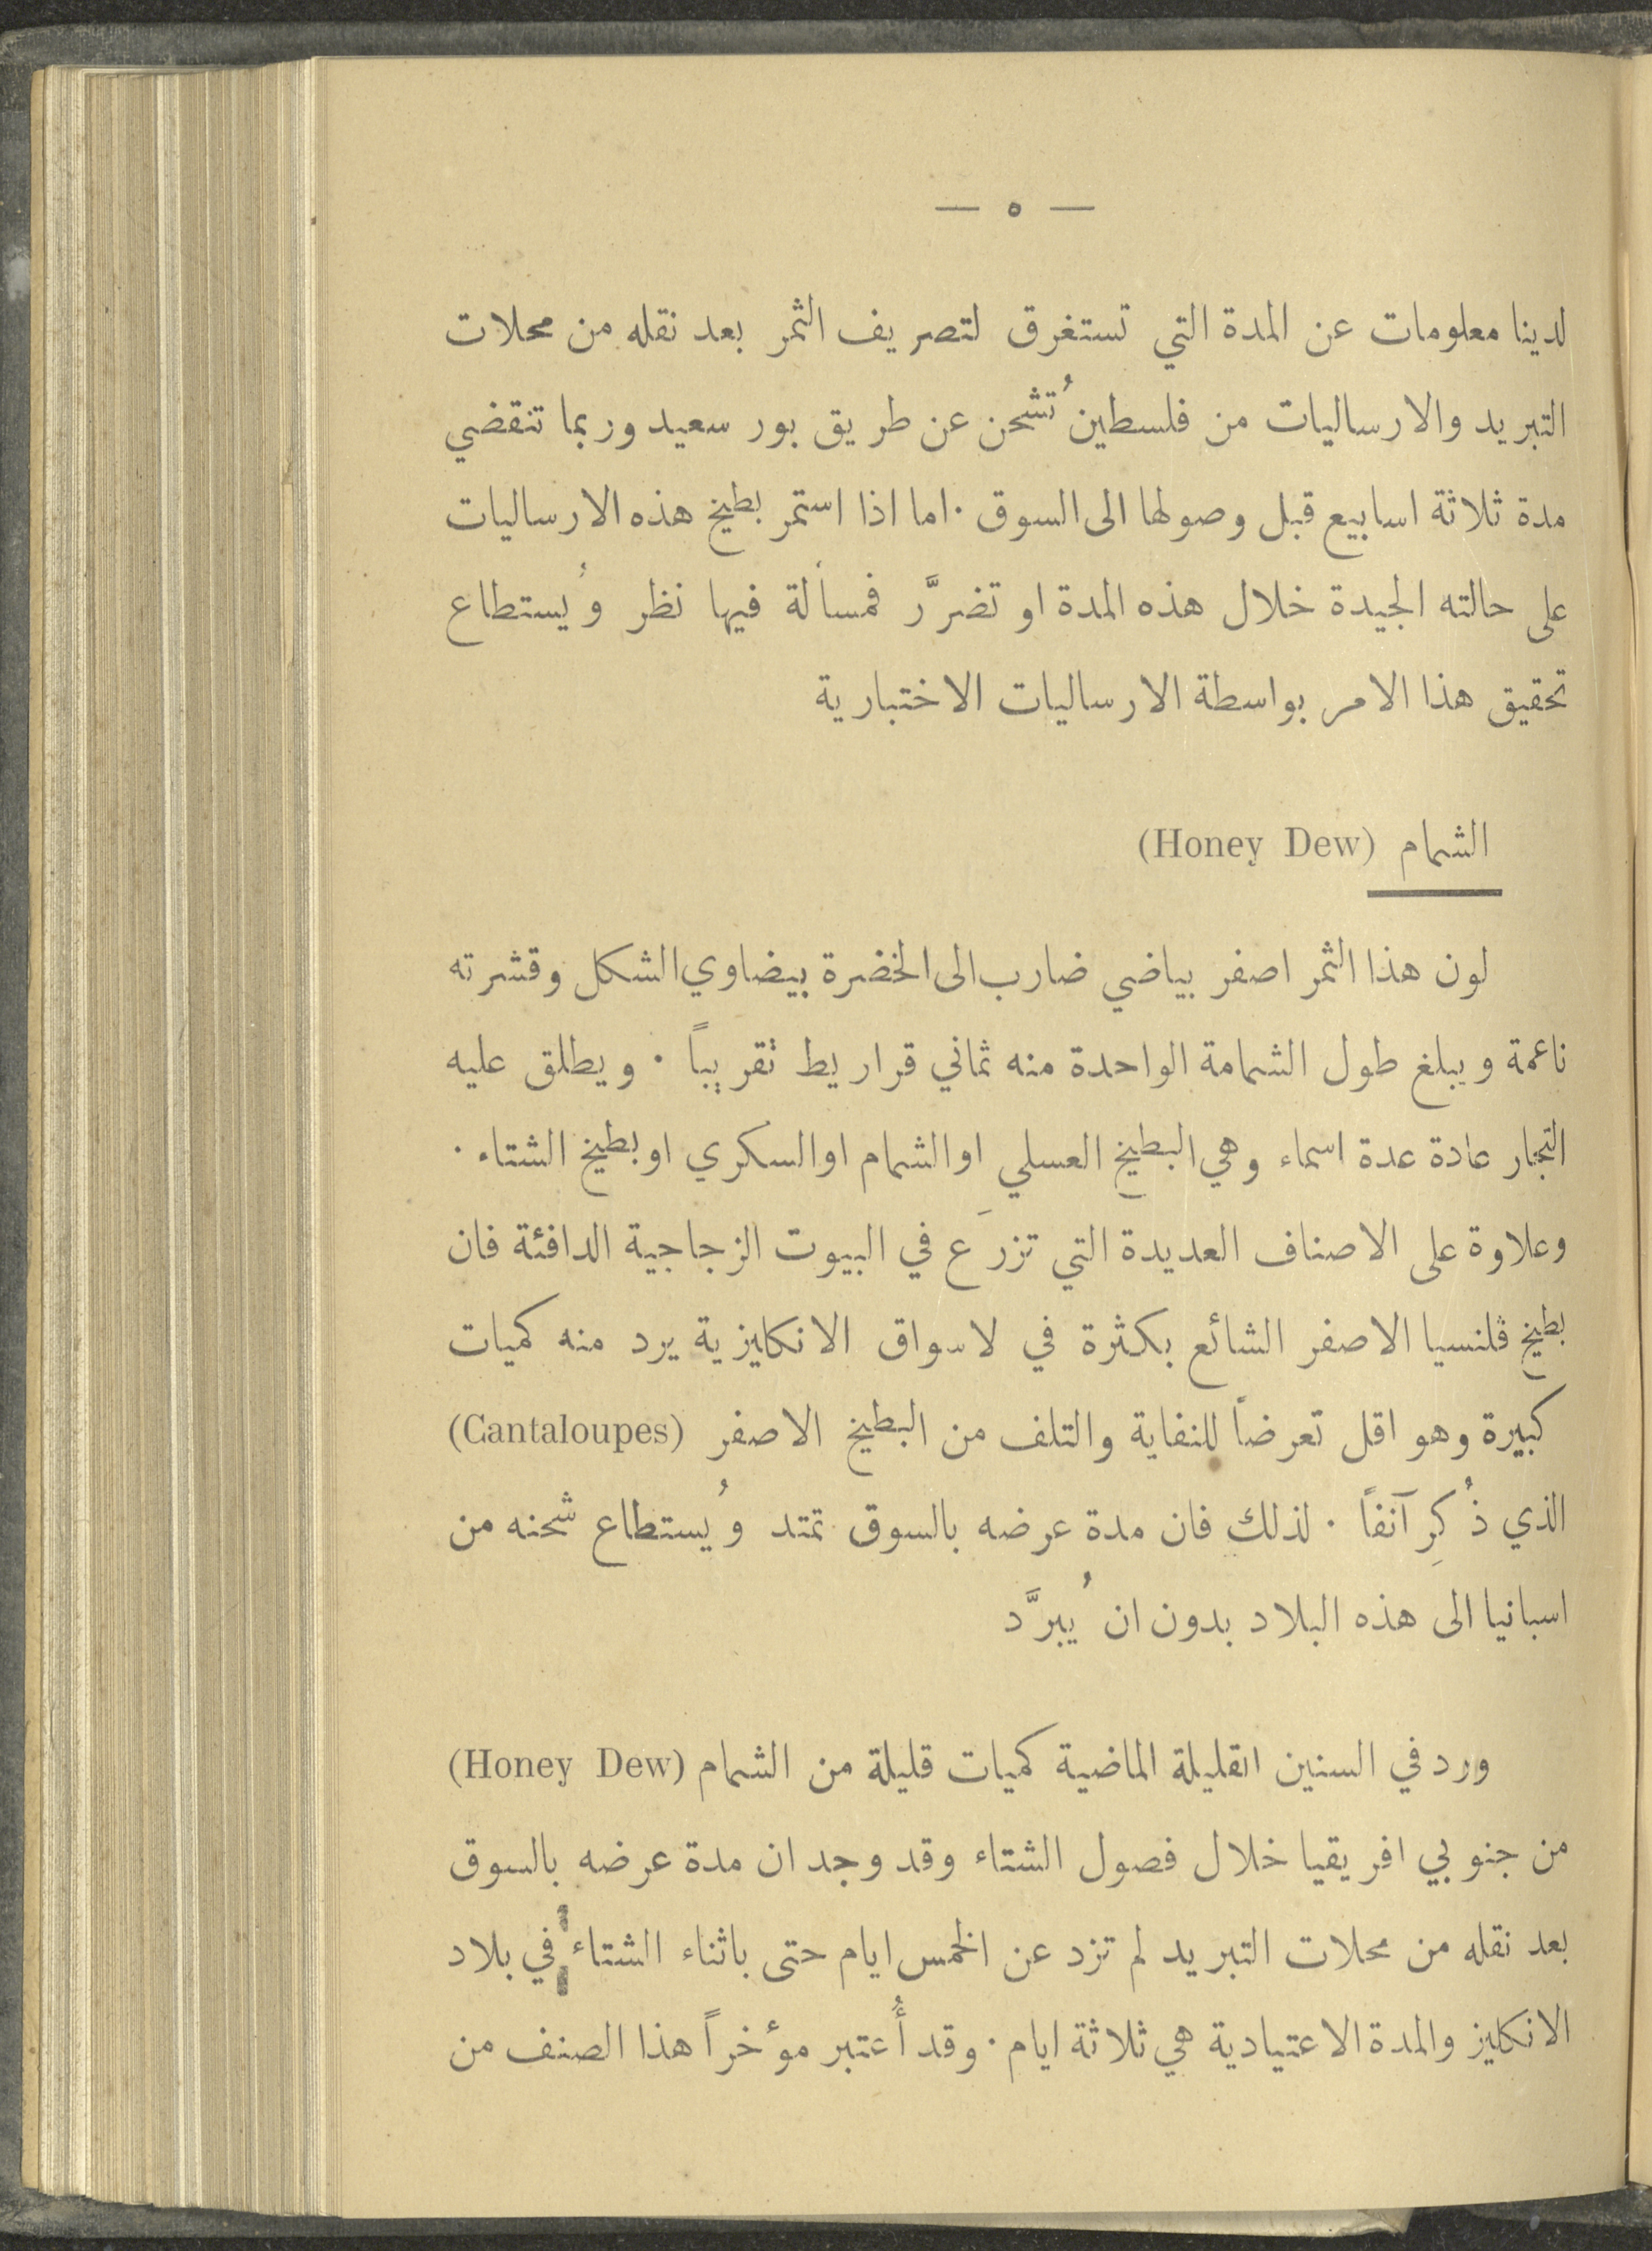 — ٥ —
لدينا معلومات عن المدة التي تستغرق لتصريف الثمر بعد نقله من محلات
التبريد والارساليات من فلسطين تُشحن عن طريق بور سعيد وربما تنقضي
مدة ثلاثة اسابيع قبل وصولها الى السوق . اما اذا استمر بطيخ هذه الارساليات
على حالته الجيدة خلال هذه المدة او تضرَّر فمسألة فيها نظر ويُستطاع
تحقيق هذا الامر بواسطة الارساليات الاختبارية
الشمام (Honey Dew)
لون هذا الثمر اصفر بياضي ضارب الى الخضرة بيضاوي الشكل وقشرته
ناعمة ويبلغ طول الشمامة الواحدة منه ثماني قراريط تقريباً . ويطلق عليه
التجار عادة عدة اسماء وهي البطيخ العسلي او الشمام او السكري او بطيخ الشتاء .
وعلاوة على الاصناف العديدة التي تزرع في البيوت الزجاجية الدافئة فان
بطيخ ڤلنسيا الاصفر الشائع بكثرة في لاسواق الانكليزية يرد منه كميات
كبيرة وهو اقل تعرضاً للنفاية والتلف من البطيخ الاصفر (Cantaloupes)
الذي ذُكِر آنفاً . لذلك فان مدة عرضه بالسوق تمتد ويُستطاع شحنه من
اسبانيا الى هذه البلاد بدون ان يُبرَّد
ورد في السنين القليلة الماضية كميات قليلة من الشمام (Honey Dew)
من جنوبي افريقيا خلال فصول الشتاء وقد وجد ان مدة عرضه بالسوق
بعد نقله من محلات التبريد لم تزد عن الخمس ايام حتى باثناء الشتاء في بلاد
الانكليز والمدة الاعتيادية هي ثلاثة ايام . وقد أُعتبر مؤخراً هذا الصنف من